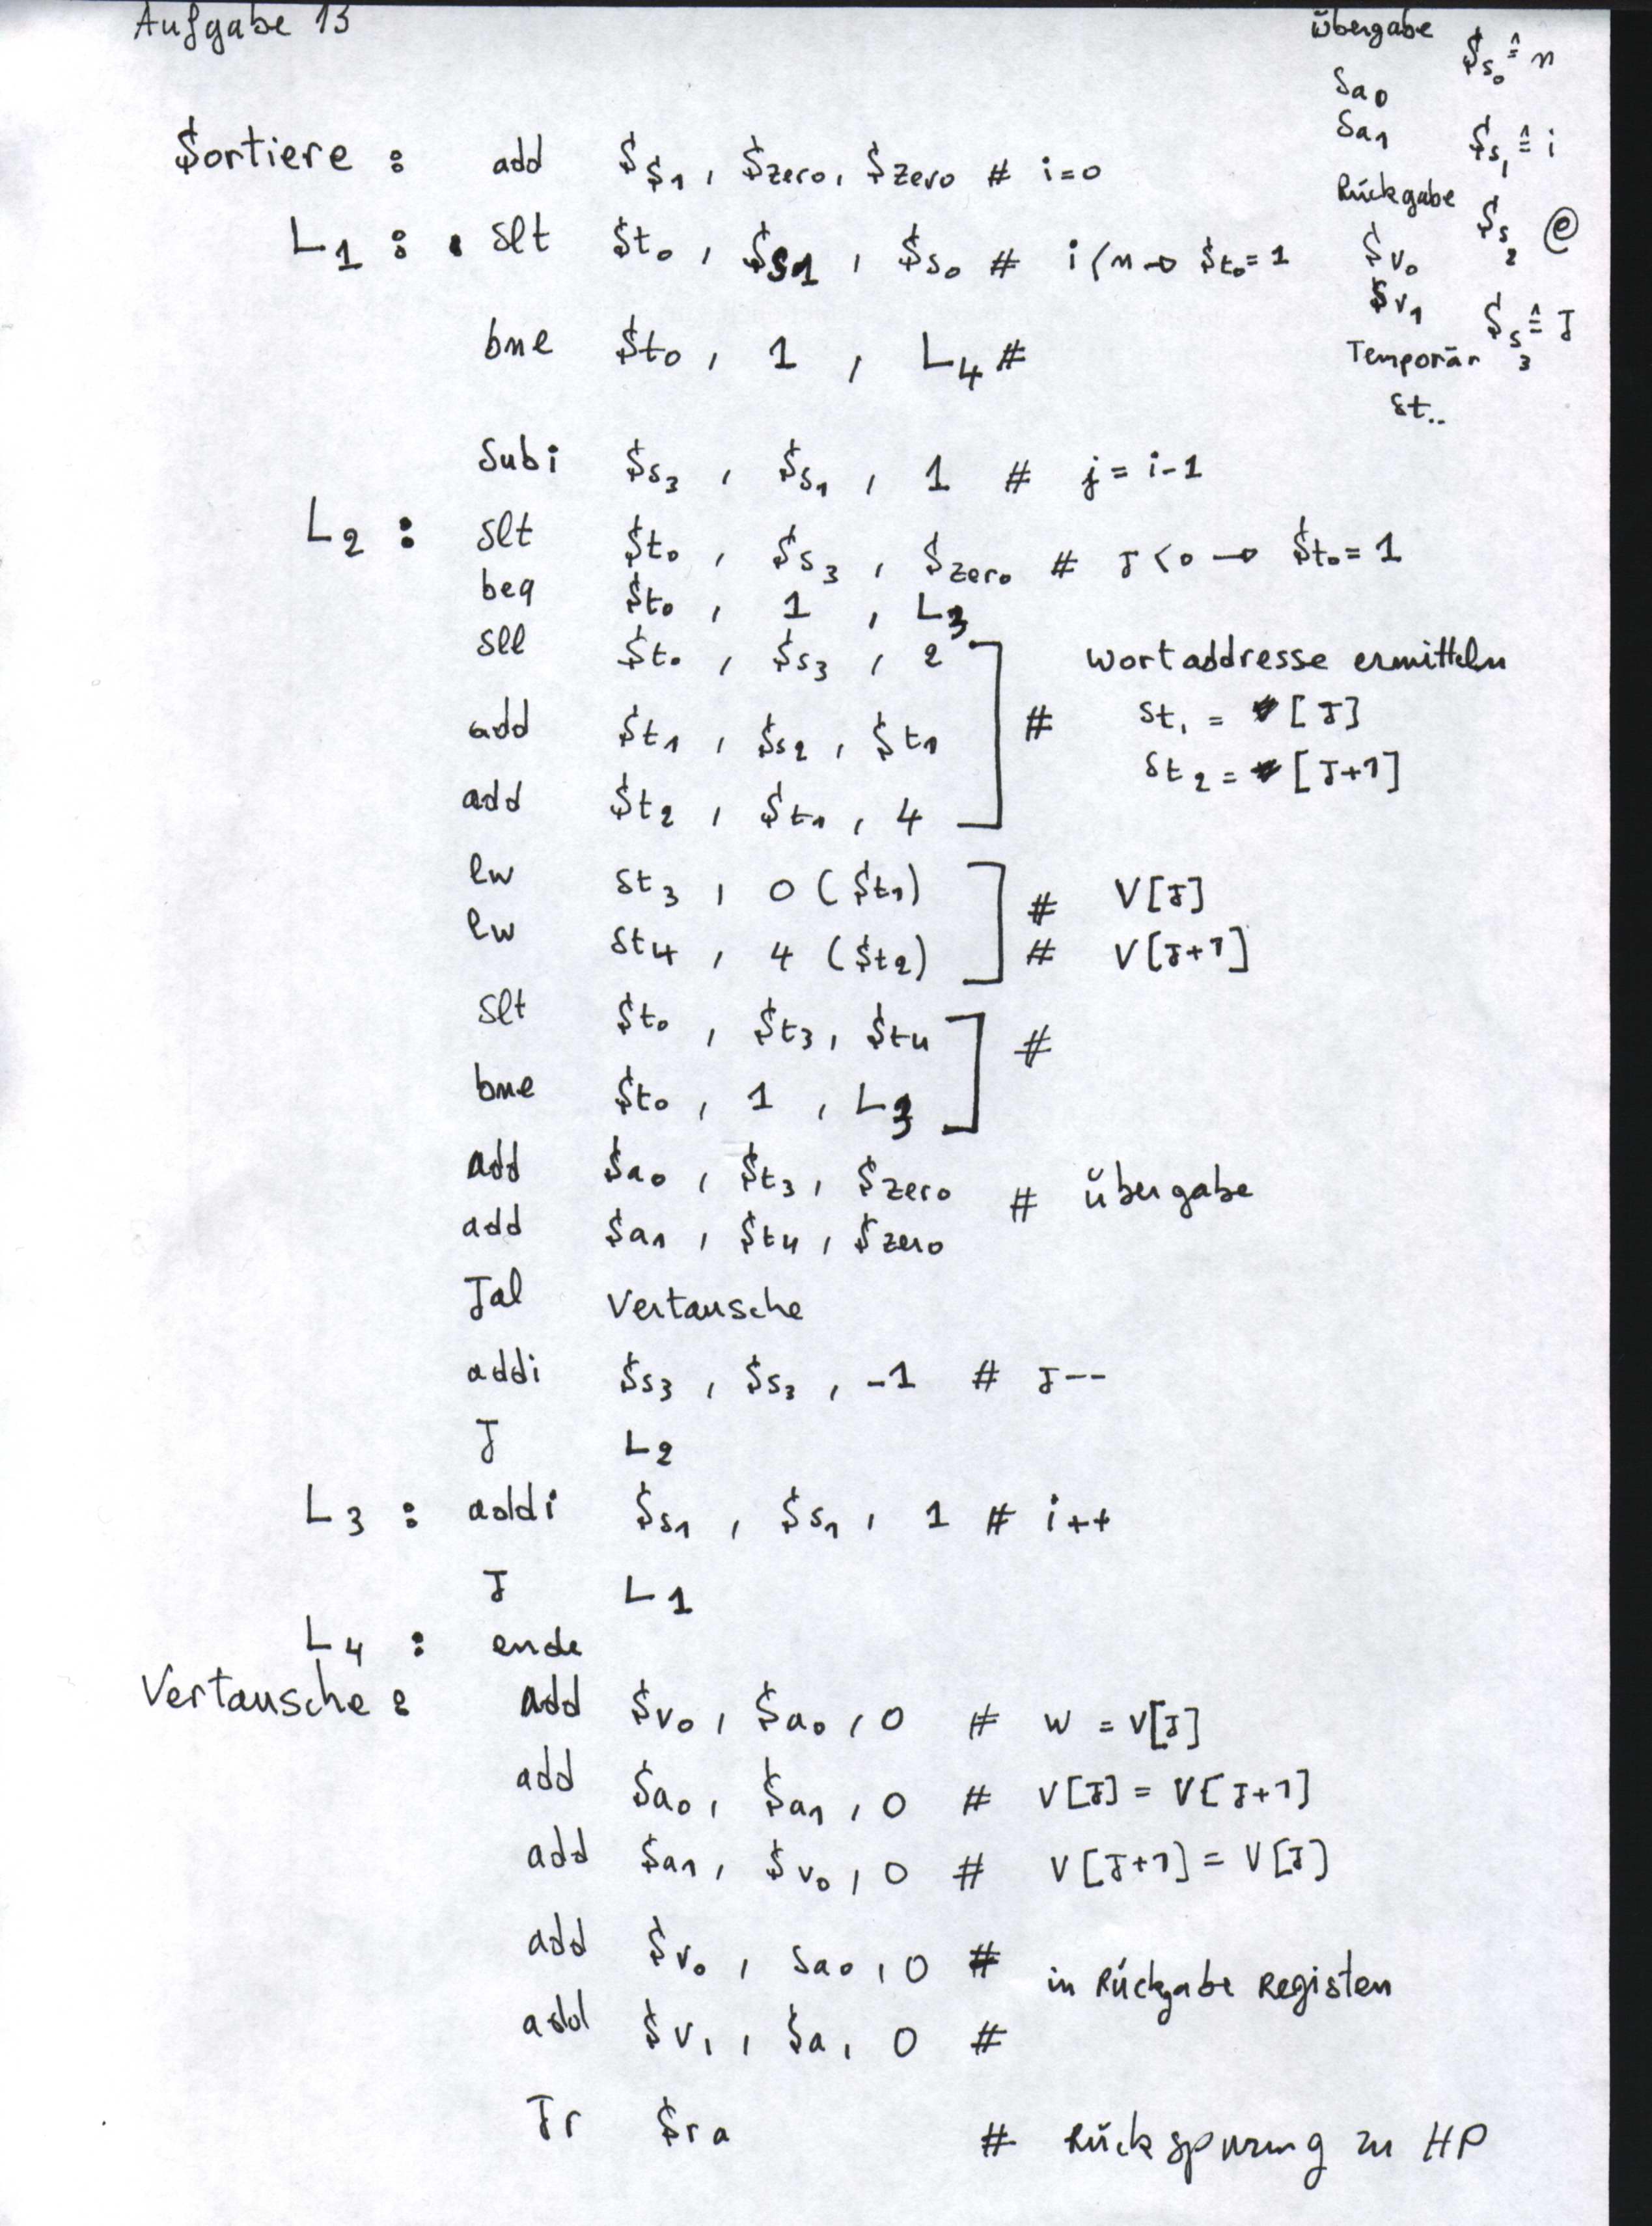 Aufgabe 13
Übergabe $s0 ≙ n
$a0
$a1 $s1 ≙ i
Rückgabe $s2 @
$v0
$v1 $s3 ≙ J
Temporär
$t..
Sortiere : add $s1 , $zero, $zero # i=0
L1 : slt $t0 , $s1 , $s0 # i<n → $t0=1
bne $t0 , 1 , L4 #
Subi $s3 , $s1 , 1 # j = i-1
L2 : slt $t0 , $s3 , $zero # J<0 → $t0=1
beq $t0 , 1 , L3
sll $t0 , $s3 , 2 ] wortaddresse ermitteln
add $t1 , $s2 , $t1 # $t1 = [J]
add $t2 , $t1 , 4 $t2 = [J+1]
lw $t3 , 0 ($t1) ] # V[J]
lw $t4 , 4 ($t2) # V[J+1]
slt $t0 , $t3 , $t4 ] #
bne $t0 , 1 , L3
add $a0 , $t3 , $zero # übergabe
add $a1 , $t4 , $zero
Jal Vertausche
addi $s3 , $s3 , -1 # J--
J L2
L3 : addi $s1 , $s1 , 1 # i++
J L1
L4 : ende
Vertausche : add $v0 , $a0 , 0 # w = V[J]
add $a0 , $a1 , 0 # V[J] = V[J+1]
add $a1 , $v0 , 0 # V[J+1] = V[J]
add $v0 , $a0 , 0 # in Rückgabe Registen
add $v1 , $a1 0 #
Jr $ra # Rückspurung zu HP